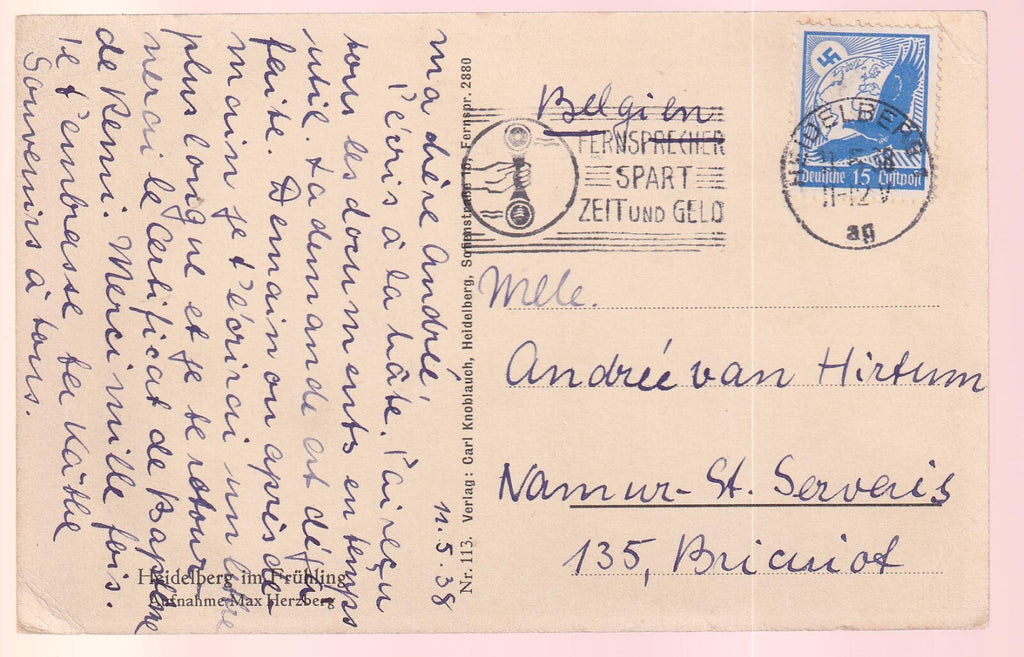 11.5.38
ma chère Andrée
J'écris à la hâte. J'ai reçu
tous les documents en temps
util. ta demande est déjà
faite. Demain ou après de-
main je t'écrirai une lettre
plus longue et je te retour
nerai le Certificat de Baptême
de Remi. Merci mille fois.
Je t'embrasse ta Käthe
Souvenirs à tous.
Heidelberg im Frühling
Aufnahme Max Herzberg
Nr. 113. Verlag: Carl Knoblauch, Heidelberg, Sofienstraße 15, Fernspr. 2880
Belgien
FERNSPRECHER
SPART
ZEIT UND GELD
HEIDELBERG
11-12 V
ag
Deutsche 15 Luftpost
Melle.
Andrée van Hirtum
Namur-St. Servais
135, Bricniot